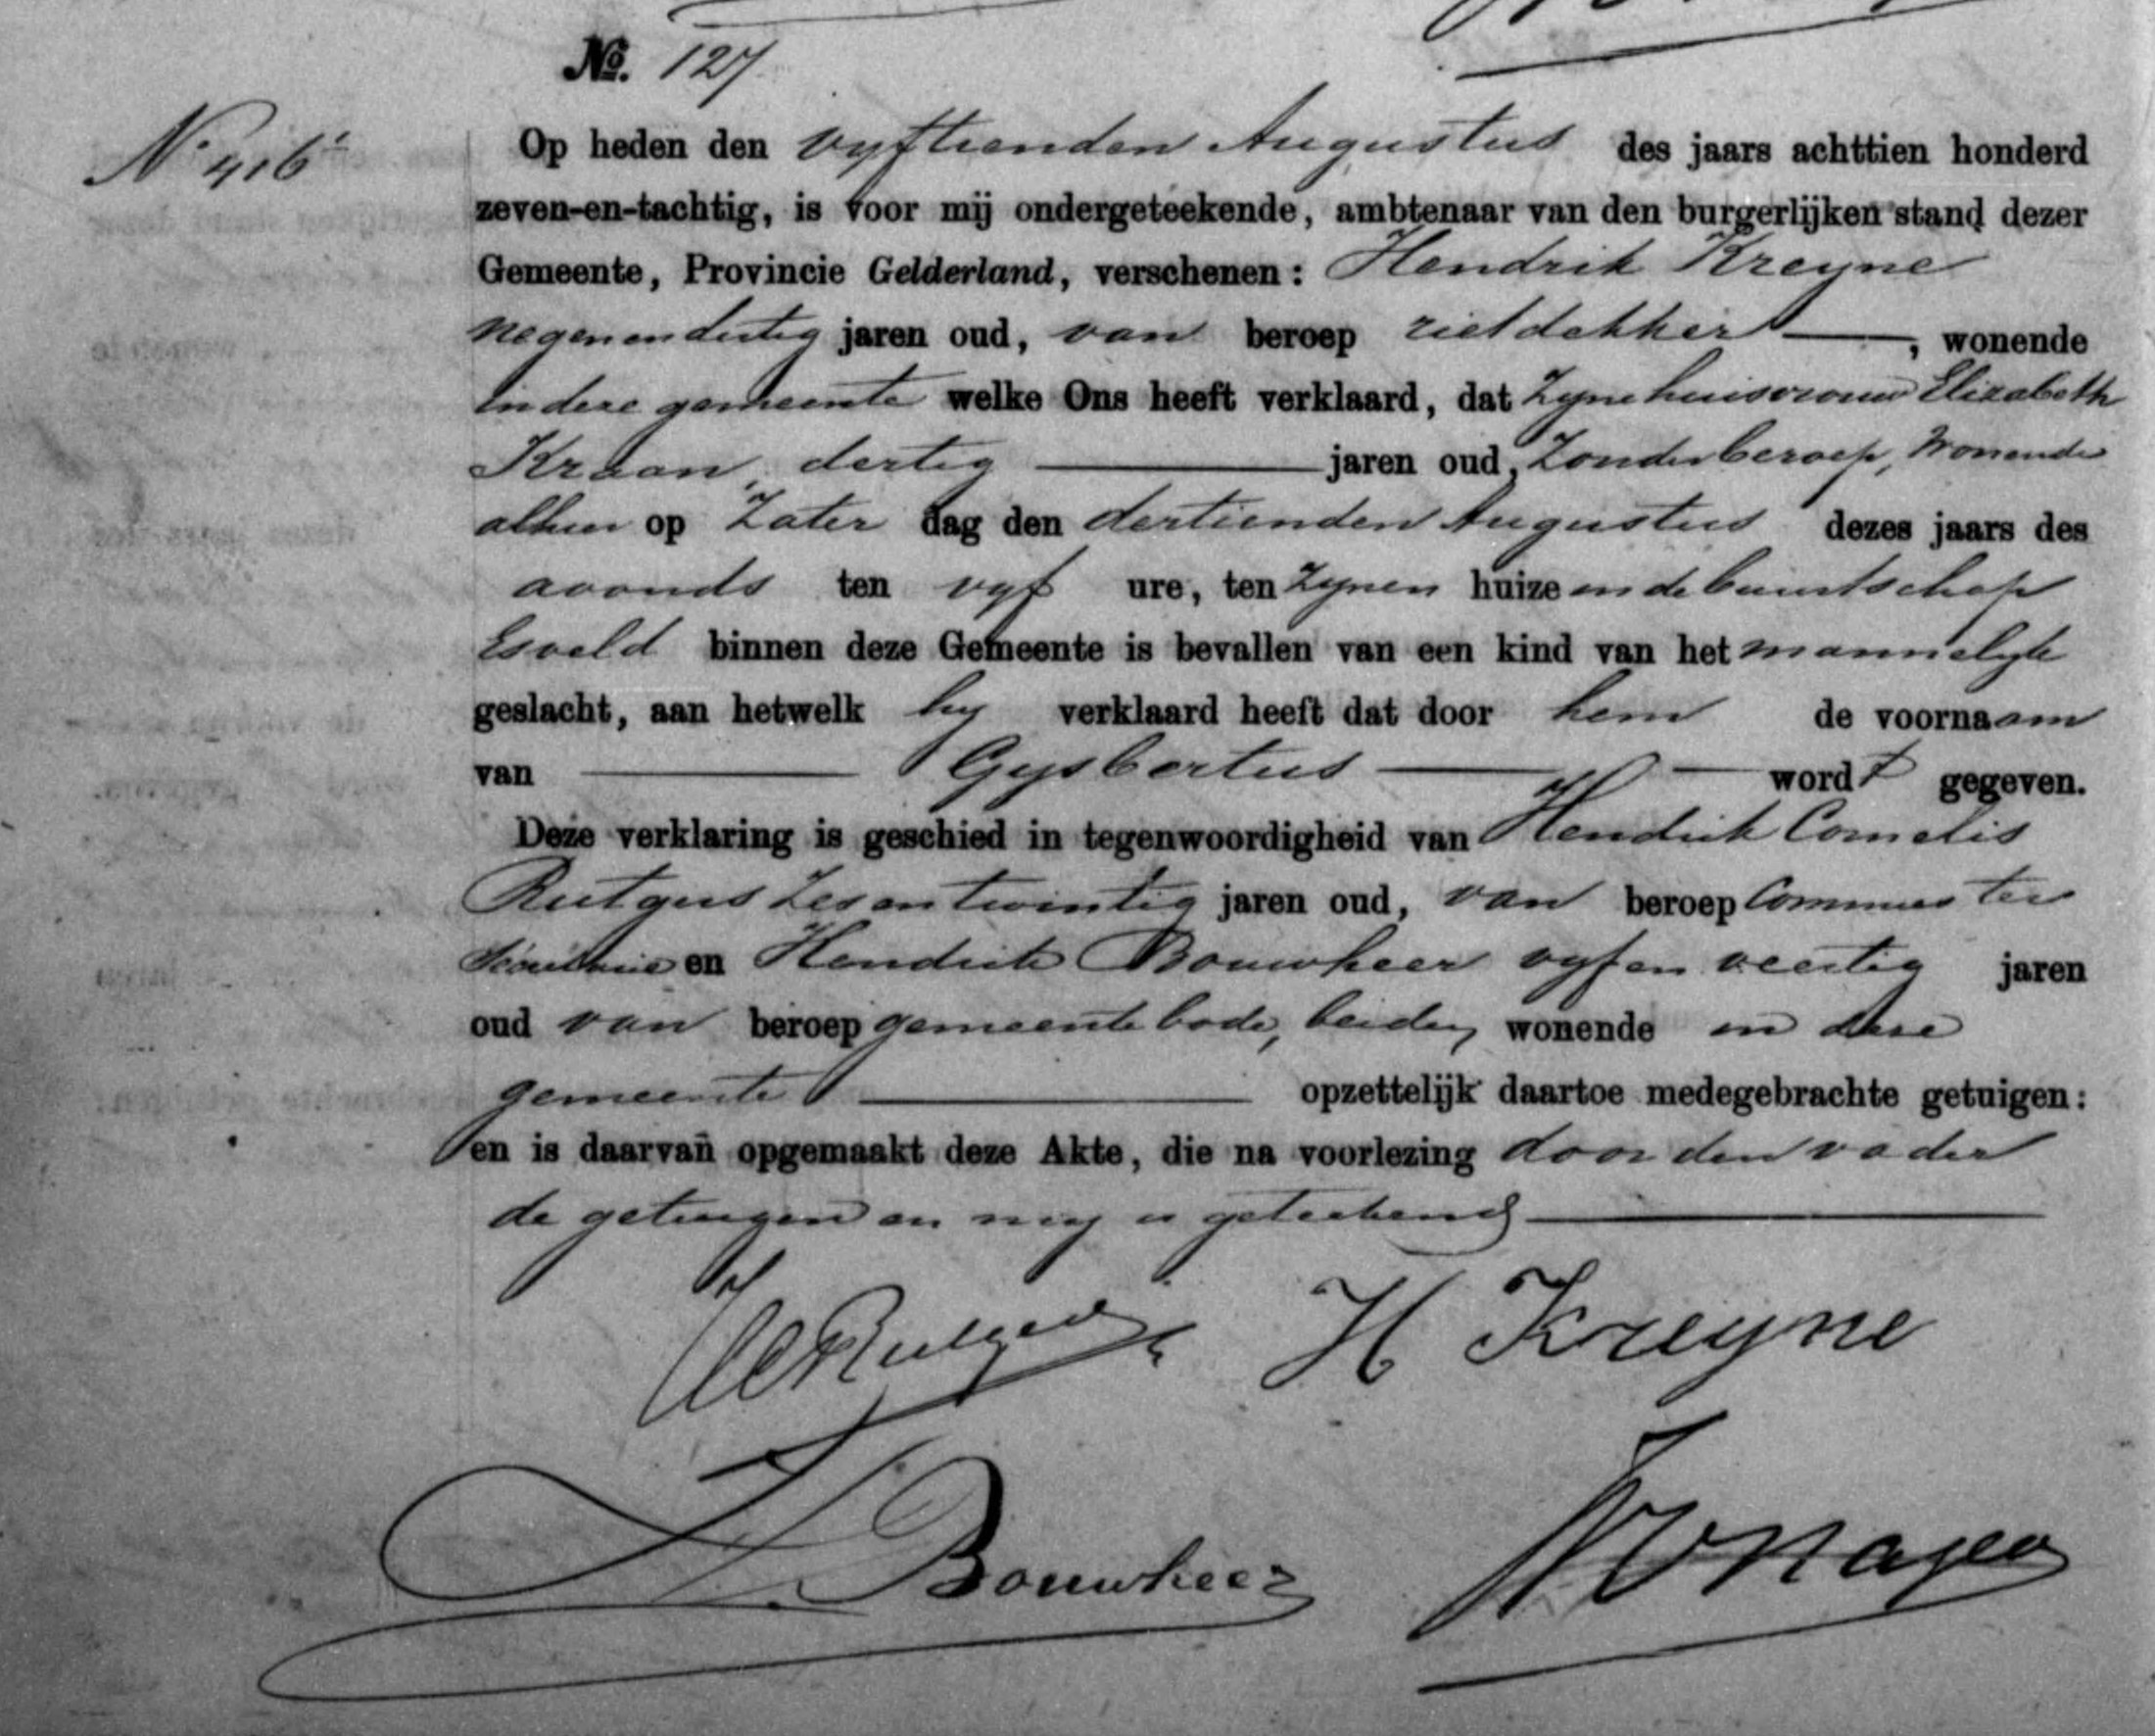 No. 127
No 416
Op heden den vyftienden Augustus des jaars achttien honderd
zeven-en-tachtig, is voor mij ondergeteekende, ambtenaar van den burgerlijken stand dezer
Gemeente, Provincie Gelderland, verschenen: Hendrik Kreyne
negenendertig jaren oud, van beroep rietdekker, wonende
in deze gemeente welke Ons heeft verklaard, dat zyne huisvrouw Elizabeth
Kraan, dertig jaren oud, zonder beroep, wonende
alhier op Zaterdag den dertienden Augustus dezes jaars des
avonds ten vyf ure, ten zynen huize in de buurtschap
Esveld binnen deze Gemeente is bevallen van een kind van het mannelyk
geslacht, aan hetwelk hy verklaard heeft dat door hem de voornaam
van Gysbertus wordt gegeven.
Deze verklaring is geschied in tegenwoordigheid van Hendrik Cornelis
Rutgers zesentwintig jaren oud, van beroep Commies ter
Secretarie en Hendrik Bouwheer vyfenveertig jaren
oud van beroep gemeentebode, beiden wonende in deze
gemeente opzettelijk daartoe medegebrachte getuigen:
en is daarvan opgemaakt deze Akte, die na voorlezing door den vader
de getuigen en my is geteekend
HCRutgers H Kreyne
H Bouwheer